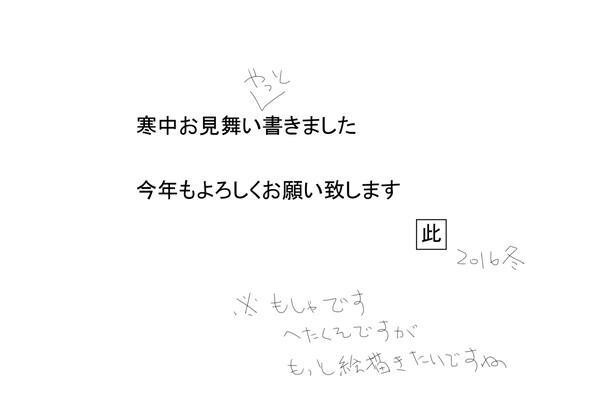 やっと
寒中お見舞い書きました
今年もよろしくお願い致します
此
2016冬
※もしゃです
へたくそですが
もっと絵描きたいですね